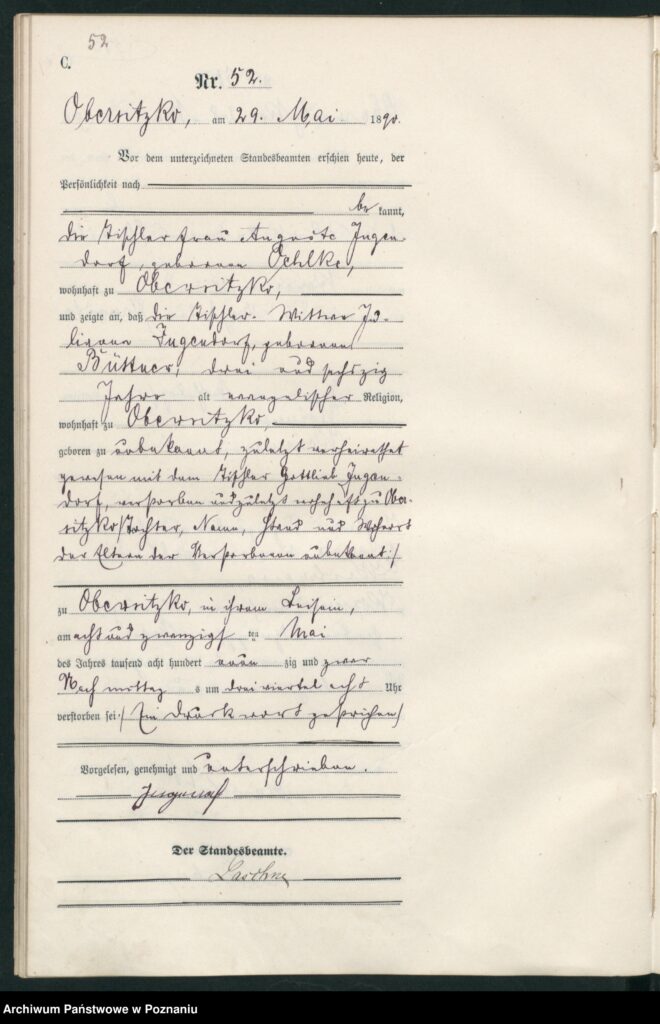 52
C.
Nr. 52.
Obersitzko, am 29. Mai 1890.
Vor dem unterzeichneten Standesbeamten erschien heute, der
Persönlichkeit nach
be kannt,
die Tischlerfrau Auguste Ingen
dorf, geborene Oehlke,
wohnhaft zu Obersitzko,
und zeigte an, daß die Tischler-Wittwe Ju-
liane Ingendorf, geborene
Büttner, drei und sechszig
Jahre alt evangelischer Religion,
wohnhaft zu Obersitzko,
geboren zu unbekannt, zuletzt verheirathet
gewesen mit dem Tischler Gottlieb Ingen-
dorf, verstorben und zuletzt wohnhaft zu Ober-
sitzko /:Tochter, Name, Stand und Wohnort
der Eltern der Verstorbenen unbekannt:/
zu Obersitzko, in ihrem Beisein,
am acht und zwanzigs ten Mai
des Jahres tausend acht hundert neun zig und zwar
Nachmittag s um dreiviertel acht Uhr
verstorben sei: /Ein Druckwort gestrichen/
Vorgelesen, genehmigt und unterschrieben.
Der Standesbeamte.
Archiwum Państwowe w Poznaniu